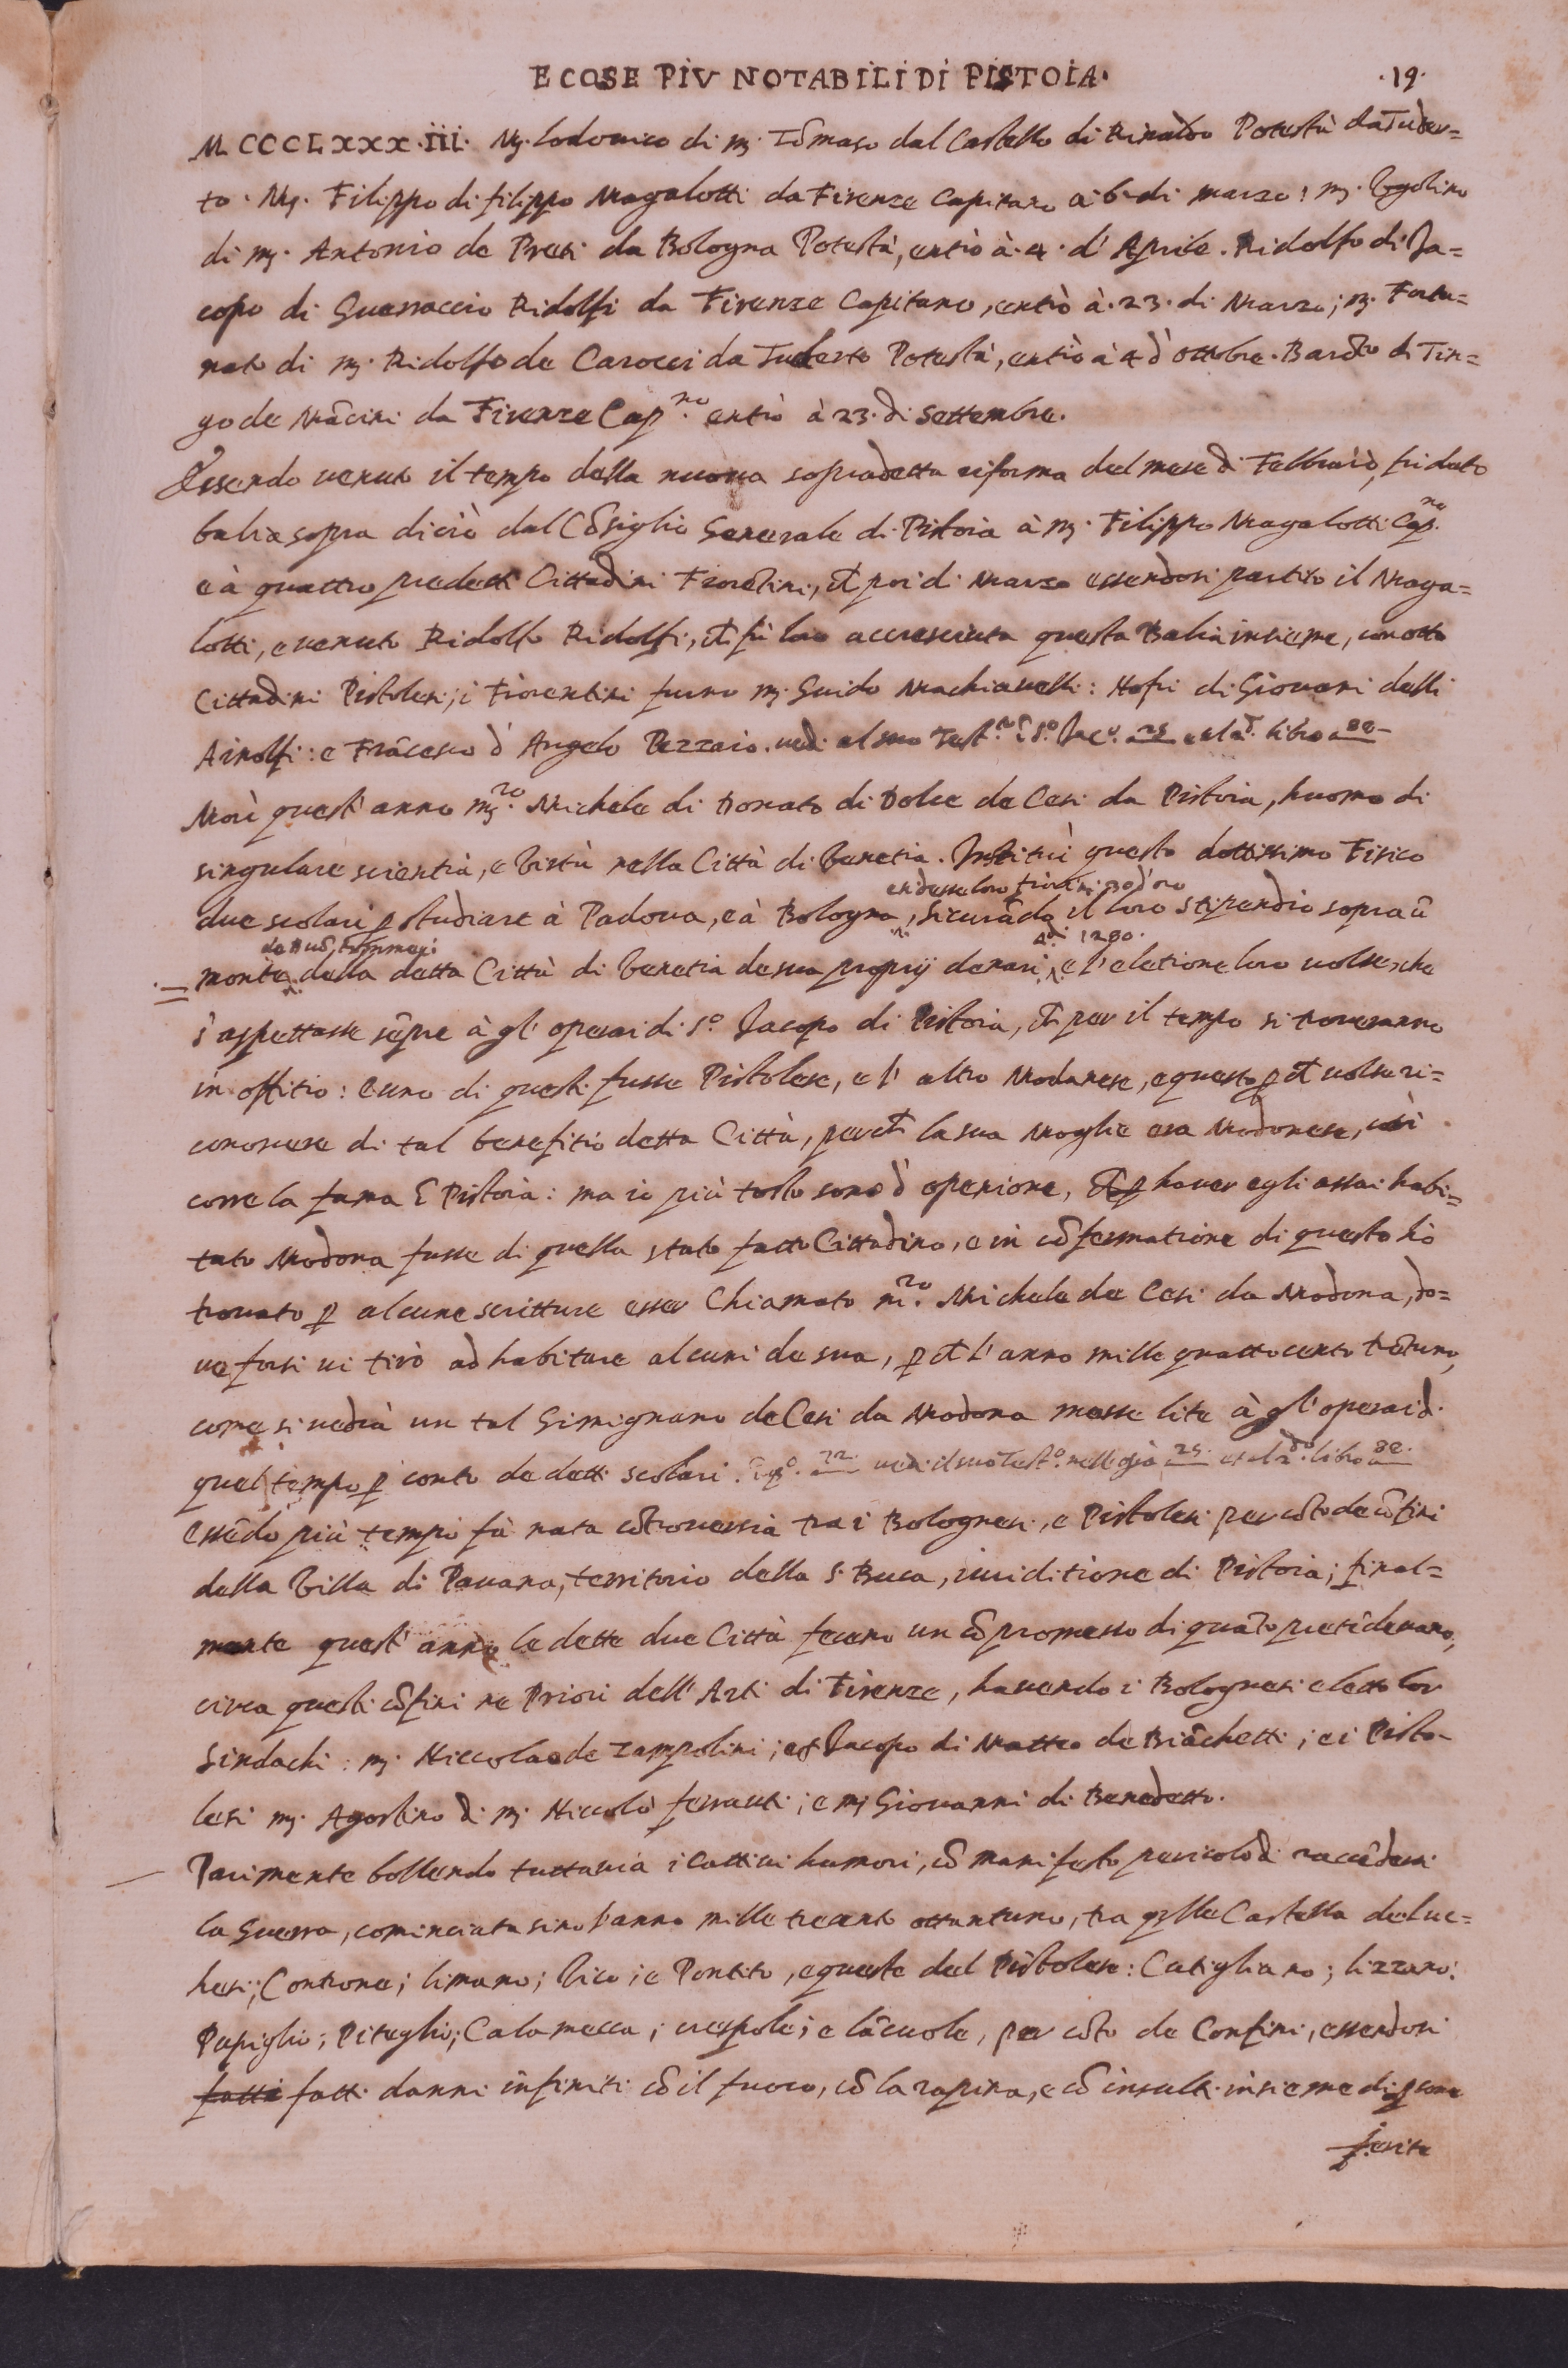 E COSE PIV NOTABILI DI PISTOIA. .19.
M CCCLXXX.iii. Mj. Lodouico di mj. Tõmaso dal Castello di Rinaldo Potestà da Tuder=
to. Mj. Filippo di filippo Magalotti da Firenze Capitano a i 6 di marzo: mj. Vgolino
di mj. Antonio de Preti da Bologna Potestà, entrò à .4. d'Aprile. Ridolfo di Ja=
copo di Guerraccio Ridolfi da Firenze Capitano, entrò à .23. di Marzo; mj. Fortu=
nato di mj. Ridolfo de Carocci da Tuderto Potestà, entrò à 4 d'ottobre. Bardo di Tin=
go de Mãcini da Firenze Cap.no entrò à 23. di Settembre.
Essendo uenuto il tempo della nuoua sopradetta riforma del mese di Febbraio, fu dato
balia sopra di ciò dal Cõsiglio Generale di Pistoia à mj. Filippo Magalotti Cap.no
e à quattro predetti Cittadini Fiorẽtini, ch poi di Marzo essendosi partito il Maga=
lotti, e uenuto Ridolfo Ridolfi, ch fù loro accresciuta questa Balia insieme, con otto
Cittadini Pistolesi; i Fiorentini furno mj. Guido Machiauelli: Nofri di Giouani delli
Arnolfi: e Frãcesco d'Angelo Pezzaio. uedi al suo Test.o ĩ S.o Jac.o 25 e al 2.o libro 88
Morì quest'anno m.ro Michele di Donato di Dolce de Cesi da Pistoia, huomo di
singulare scientia, e Virtù nella Città di Venetia. Instituì questo dottissimo Fisico
en desse loro fiorini d'oro
due scolari p studiare à Padoua, e à Bologna, sicurãdo il loro stipendio sopra ũ
1280.
monte della detta Città di Venetia de sua proprij denari, e l'eletione loro uolse, che
s'aspettasse sẽpre à gl'operai di S.o Jacopo di Pistoia, ch per il tempo si troueranno
in offitio: e uno di questi fusse Pistolese, e l'altro Modanese, e questo p ch uolse ri=
conoscere di tal benefitio detta Città, perch la sua Moglie era Modonese, così
corre la fama ĩ Pistoia: ma io più tosto sono d'openione, ch p hauer egli assai habi=
tato Modona fusse di quella stato fatto Cittadino, e in cõfermatione di questo hò
trouato p alcune scritture esser Chiamato m.ro Michele de Cesi da Modona, do=
ue forsi ui tirò ad habitare alcuni de sua, p ch l'anno mille quattocento trẽtuno,
come si uedrà un tal Gimignano de Cesi da Modona mosse lite à gl'operai di
quel tempo p conto de detti scolari. 22. uedi il suo Test.o nelle 25. et al 2.do libro 88.
Essẽdo più tempi fà nata cõtrouersia tra i Bolognesi, e Pistolesi per cõto de cõfini
della Villa di Pauana, territorio della S. Buca, iuriditione di Pistoia; final=
mente quest'anno le dette due Città fecero un cõpromesso di quãto pretẽdeuano,
circa questi cõfini ne Priori dell'Arti di Firenze, hauendo i Bolognesi eletto lor
Sindachi: mj. Niccolao de Zampolini; et Jacopo di Matteo de Biãchetti; e i Pisto=
lesi mj. Agostino di mj. Niccolò ferranti; e mj Giouanni di Benedetto.
Parimente bollendo tuttauia i cattiui humori, cõ manifesto pericolo di raccẽdersi
la Guerra, cominciata sino l'anno mille trecento ottantuno, tra q.lle Castella de Luc=
hesi; Controne; Limano; Vico; e Pontito, e queste del Pistolese: Cutigliano; Lizzano:
Popiglio; Piteglio; Calamecca; crespole; e lãciuole, per cõto de Confini, essendosi
fatti fatti danni infiniti cõ il fuoco, cõ la rapina, e cõ insulti insieme di p sone
ferite